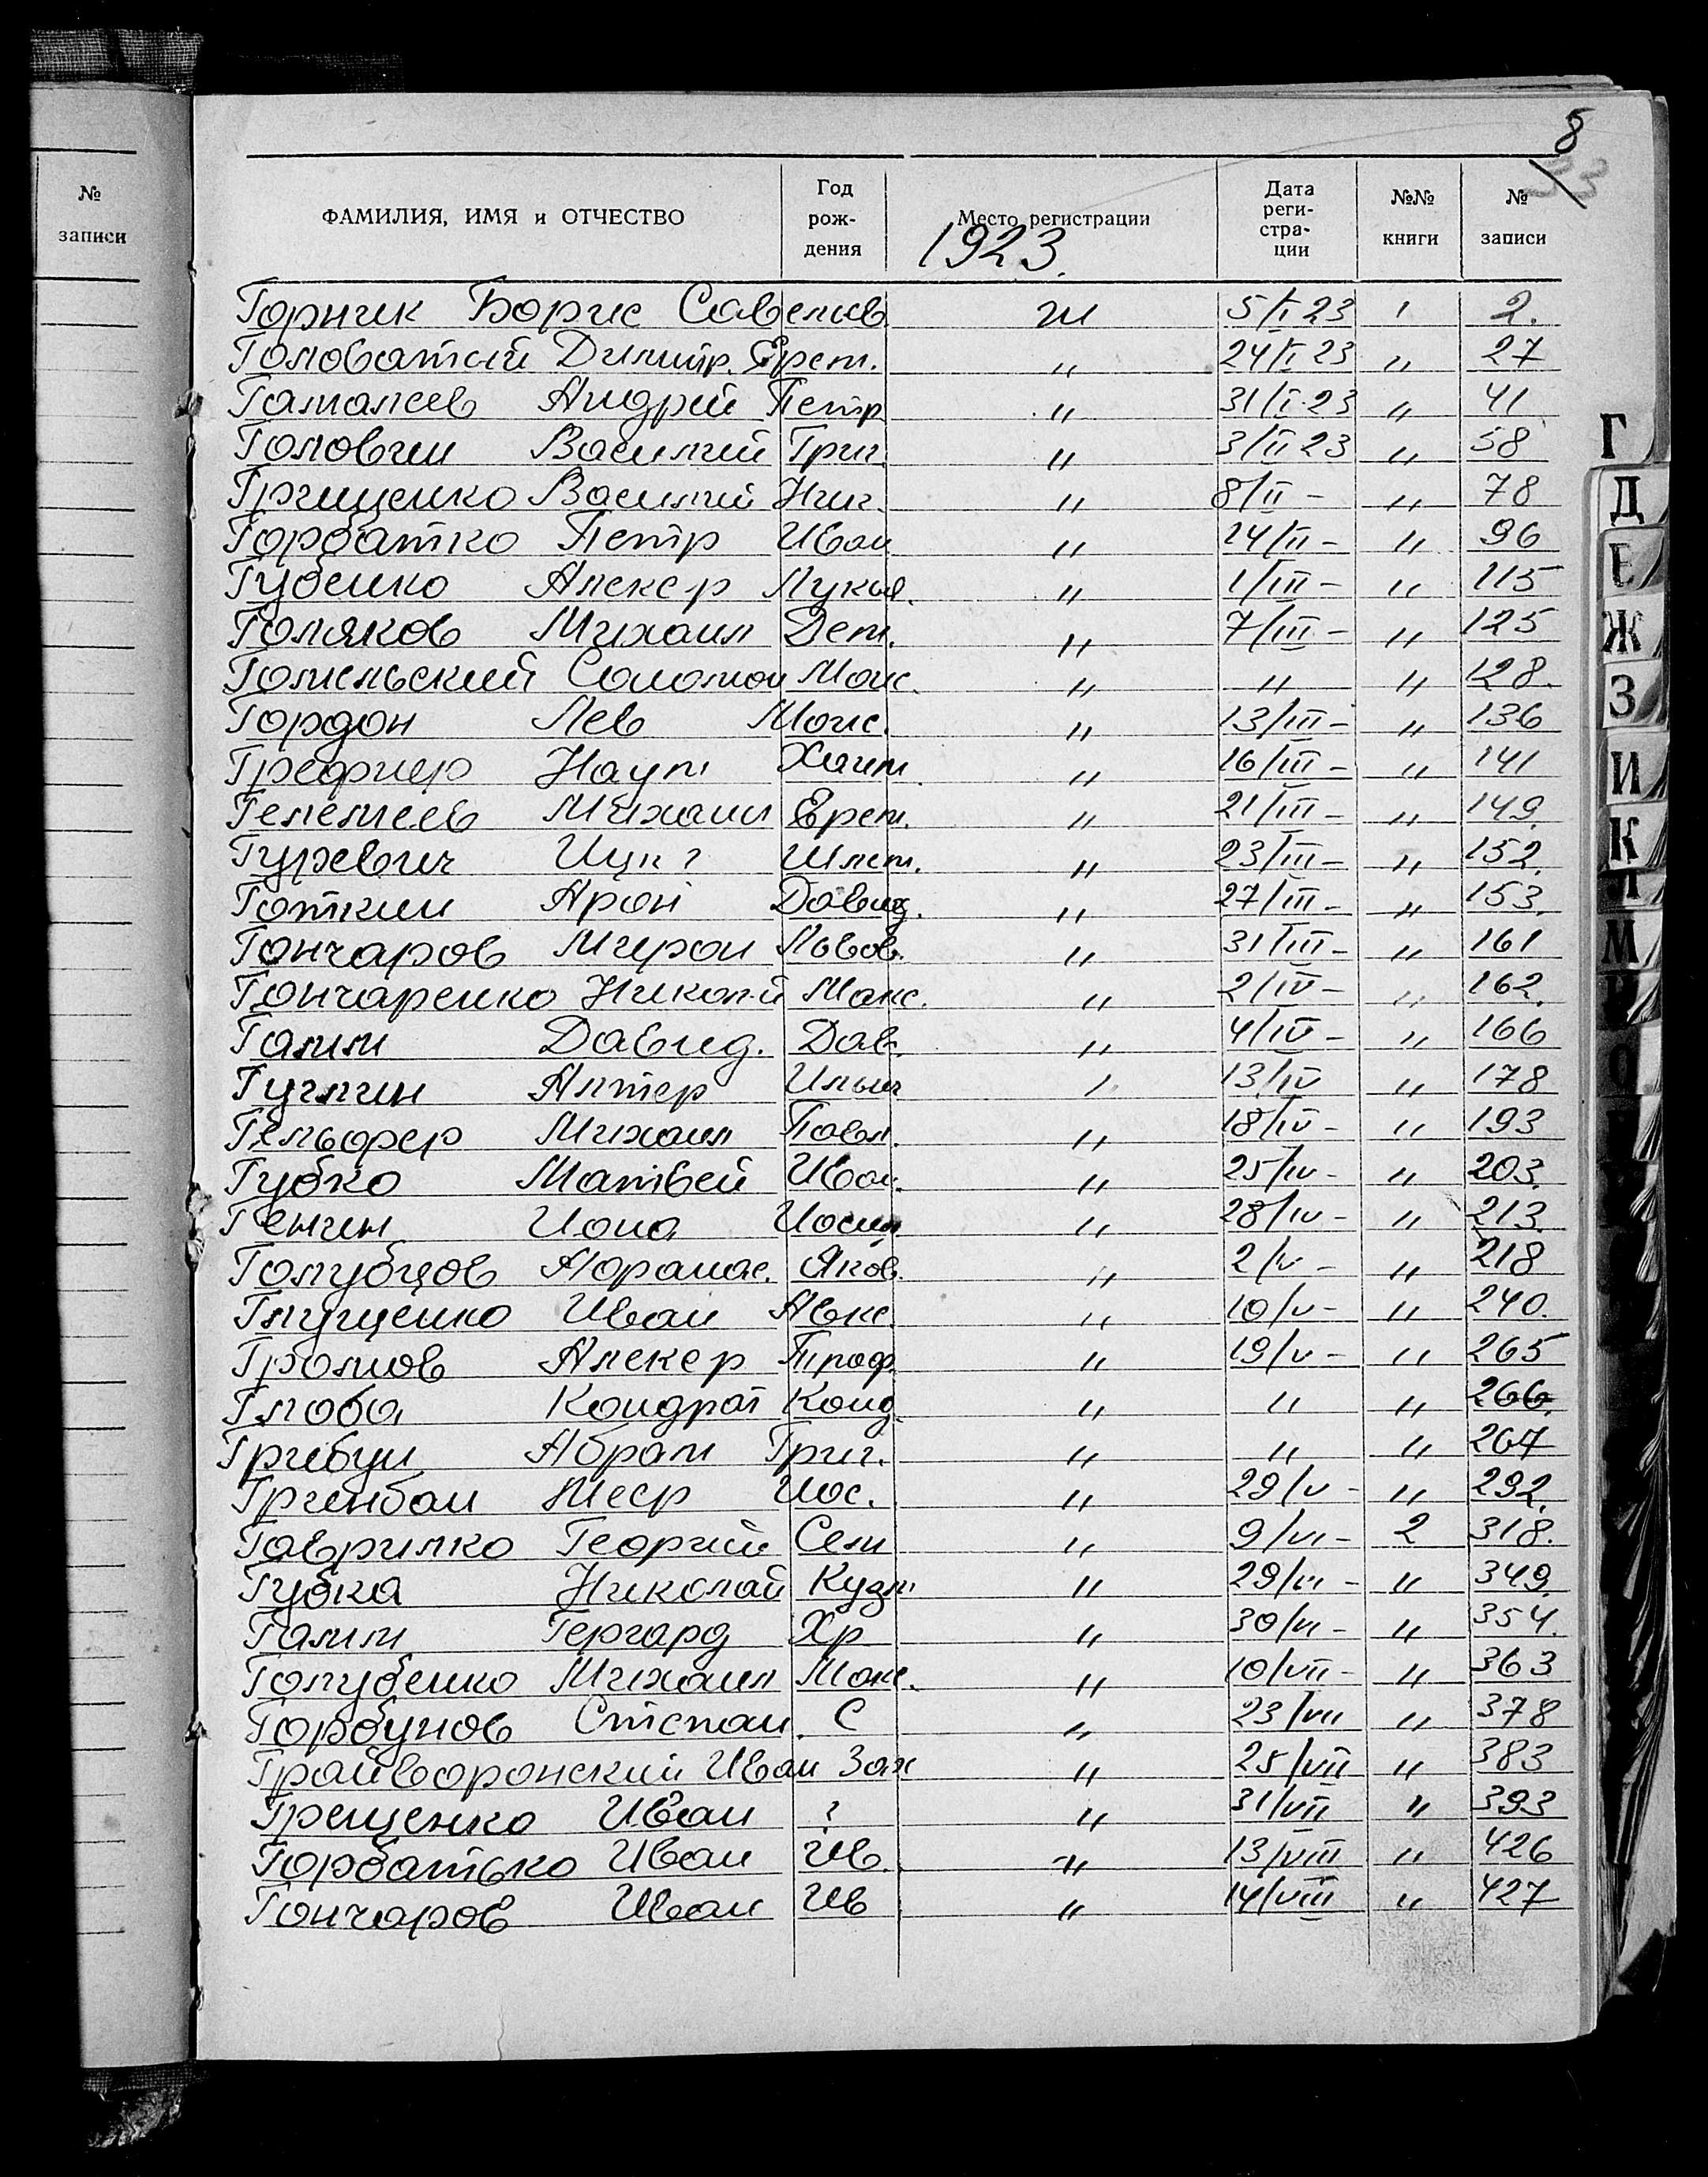 8
33
№ записи
ФАМИЛИЯ, ИМЯ и ОТЧЕСТВО Год рож-дения Место регистрации Дата реги-стра-ции №№ книги № записи
1923.
Горник Борис Савельев 5/I 23 1 2.
Головатый Димитр. Ерем. " 24/I 23 " 27
Гамалеев Андрей Петр " 31/I 23 " 41
Головин Василий Григ. " 3/II 23 " 58
Грищенко Василий Ник. " 8/II - " 78
Горбатко Петр Иван " 24/II - " 96
Губенко Алекср Лукья. " 1/III - " 115
Голяков Михаил Дем. " 7/III - " 125
Гомельский Соломон Моис. " " " 128.
Гордон Лев Моис. " 13/III - " 136
Грефнер Наум Хаим. " 16/III - " 141
Гелемеев Михаил Ерем. " 21/III - " 149.
Гуревич Ицк ? Шлем. " 23/III - " 152.
Готкин Арон Давид. " 27/III - " 153.
Гончаров Мирон Львов. " 31/III - " 161
Гончаренко Никол-й Макс. " 2/IV - " 162.
Гамм Давид. Дав. " 4/IV - " 166
Гуглин Алтер Ильич " 13/IV " 178
Гельфер Михаил Павл. " 18/IV - " 193
Губко Матвей Иван. " 25/IV - " 203.
Генгин Иона Иосиф " 28/IV - " 213.
Голубцов Афанас. Яков. " 2/V - " 218
Глущенко Иван Авкс. " 10/V - " 240.
Громов Алекср Троф. " 19/V - " 265
Глоба Кондрат Конд. " " " 266.
Грибун Абрам Григ. " " " 267
Гринбан Меер Иос. " 29/V - " 292.
Гаврилко Георгий Сем " 9/VI - 2 318.
Губка Николай Кузм " 29/VI - " 349.
Гамм Гергард Хр " 30/VI - " 354.
Голубенко Михаил Макс. " 10/VII - " 363
Горбунов Степан. С " 23/VII " 378
Грайворонский Иван Зах " 25/VII " 383
Грещенко Иван ? " 31/VII " 393
Горбатько Иван Ив. " 13/VIII " 426
Гончаров Иван Ив " 14/VIII " 427
Г
Д
Е
Ж
З
И
К
Л
М
О